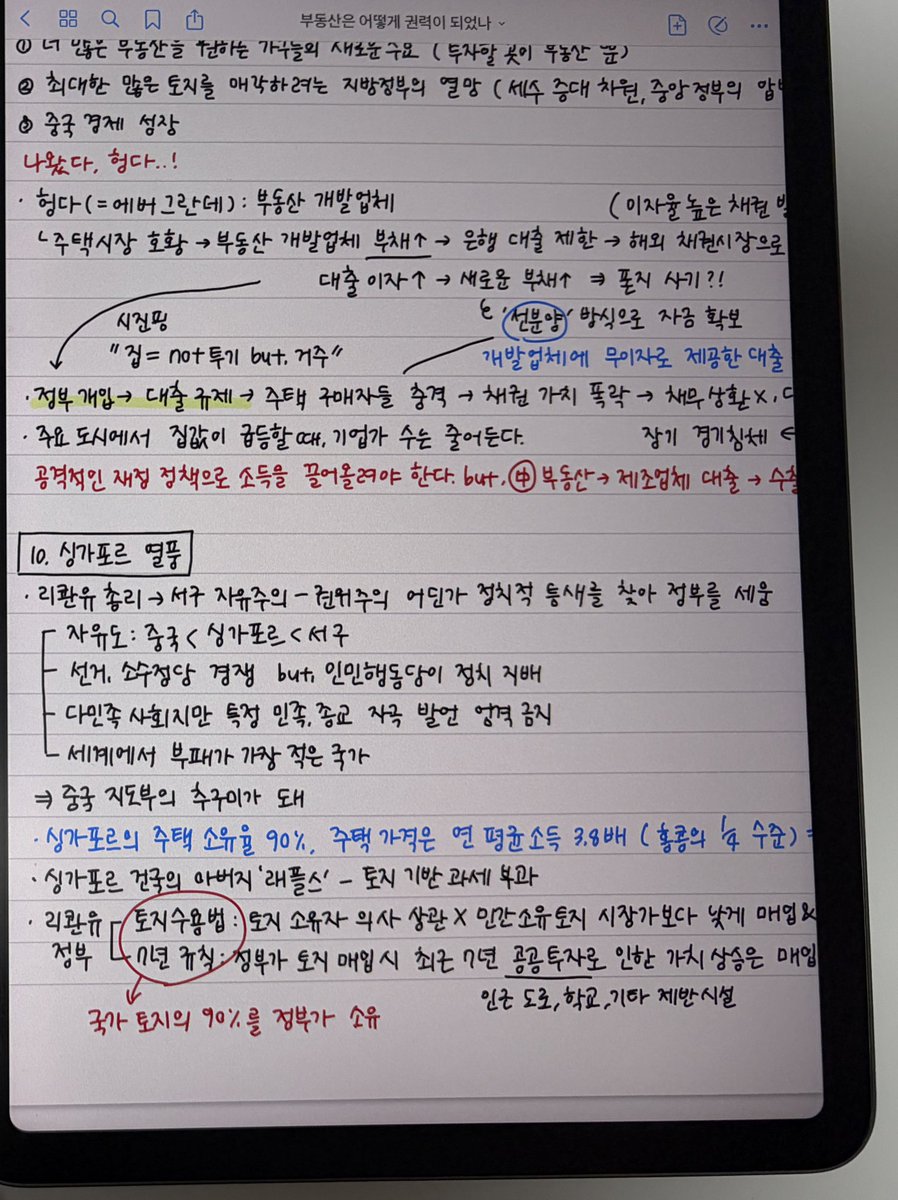 부동산은 어떻게 권력이 되었나
① 더 많은 부동산을 원하는 가구들의 새로운 수요 (투자할 곳이 부동산 뿐)
② 최대한 많은 토지를 매각하려는 지방정부의 열망 (세수 증대 차원, 중앙정부의
③ 중국 경제 성장
나왔다, 헝다..!
· 헝다(=에버그란데): 부동산 개발업체 (이자율 높은 채권
ㄴ주택시장 호황 → 부동산 개발업체 부채↑ → 은행 대출 제한 → 해외 채권시장으로
대출이자↑ → 새로운 부채↑ ⇒ 폰지 사기?!
시진핑
'선분양' 방식으로 자금 확보
"집= not 투기 but, 거주"
개발업체에 무이자로 제공한 대출
· 정부개입 → 대출규제 → 주택 구매자들 충격 → 채권 가치 폭락 → 채무상환 X,
· 주요 도시에서 집값이 급등할 때, 기업가 수는 줄어든다. 장기 경기침체 ∈
공격적인 재정 정책으로 소득을 끌어올려야 한다. but, 中 부동산 → 제조업체 대출 → 수출
10. 싱가포르 열풍
· 리콴유 총리 → 서구 자유주의 – 권위주의 어딘가 정치적 틈새를 찾아 정부를 세움
자유도: 중국 < 싱가포르 < 서구
선거, 소수정당 경쟁 but, 인민행동당이 정치 지배
다민족 사회지만 특정 민족, 종교 자극 발언 엄격 금지
세계에서 부패가 가장 적은 국가
⇒ 중국 지도부의 추구미가 돼
· 싱가포르의 주택 소유율 90%, 주택 가격은 연 평균소득 3.8배 (홍콩의 1/4 수준) ⇒
· 싱가포르 건국의 아버지 '래플스' – 토지 기반 과세 부과
· 리콴유 토지수용법: 토지 소유자 의사 상관 X 민간소유토지 시장가보다 낮게 매입&
정부 7년 규칙: 정부가 토지 매입시 최근 7년 공공투자로 인한 가치 상승은 매입
인근 도로, 학교, 기타 제반시설
국가 토지의 90%를 정부가 소유